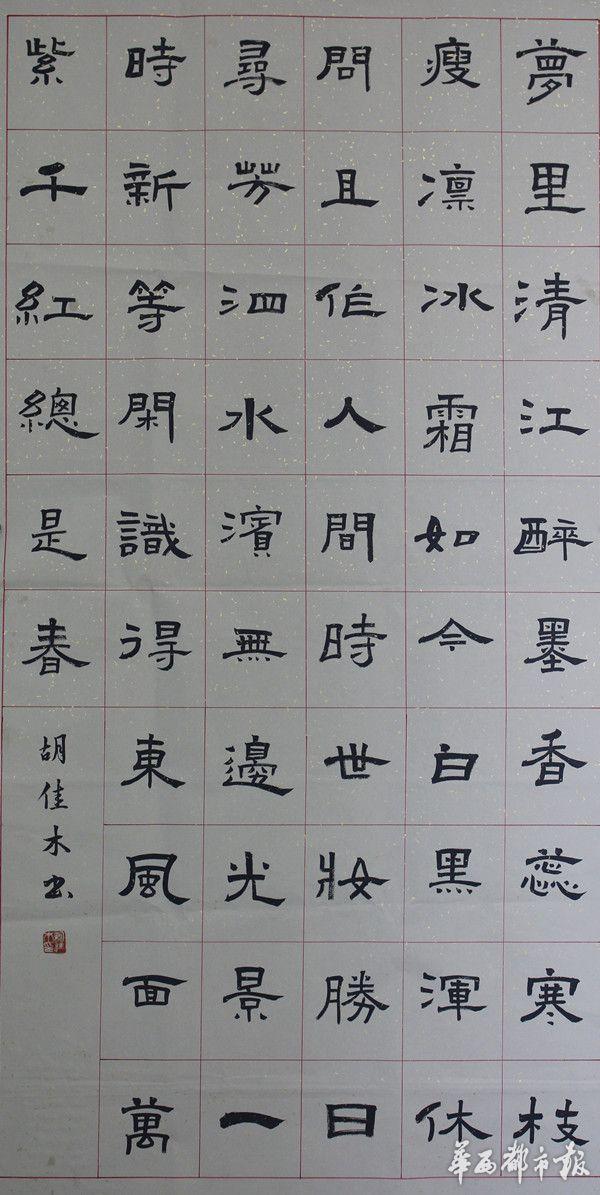 夢里清江醉墨香蕊寒枝
瘦凛冰霜如今白黑渾休
問且作人間時世妝勝日
尋芳泗水濱無邊光景一
時新等閑識得東風面萬
紫千紅總是春
胡佳木书
華西都市報